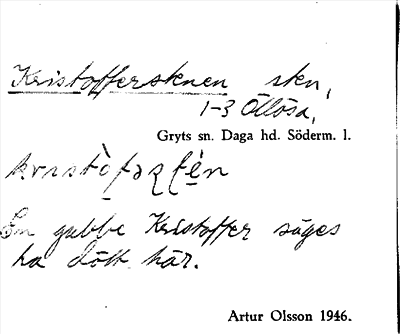 Kristoffersstenen sten,
1-3 Ällösa,
Gryts sn. Daga hd. Söderm. l.
En gubbe Kristoffer säges
ha dött här.
Artur Olsson 1946.